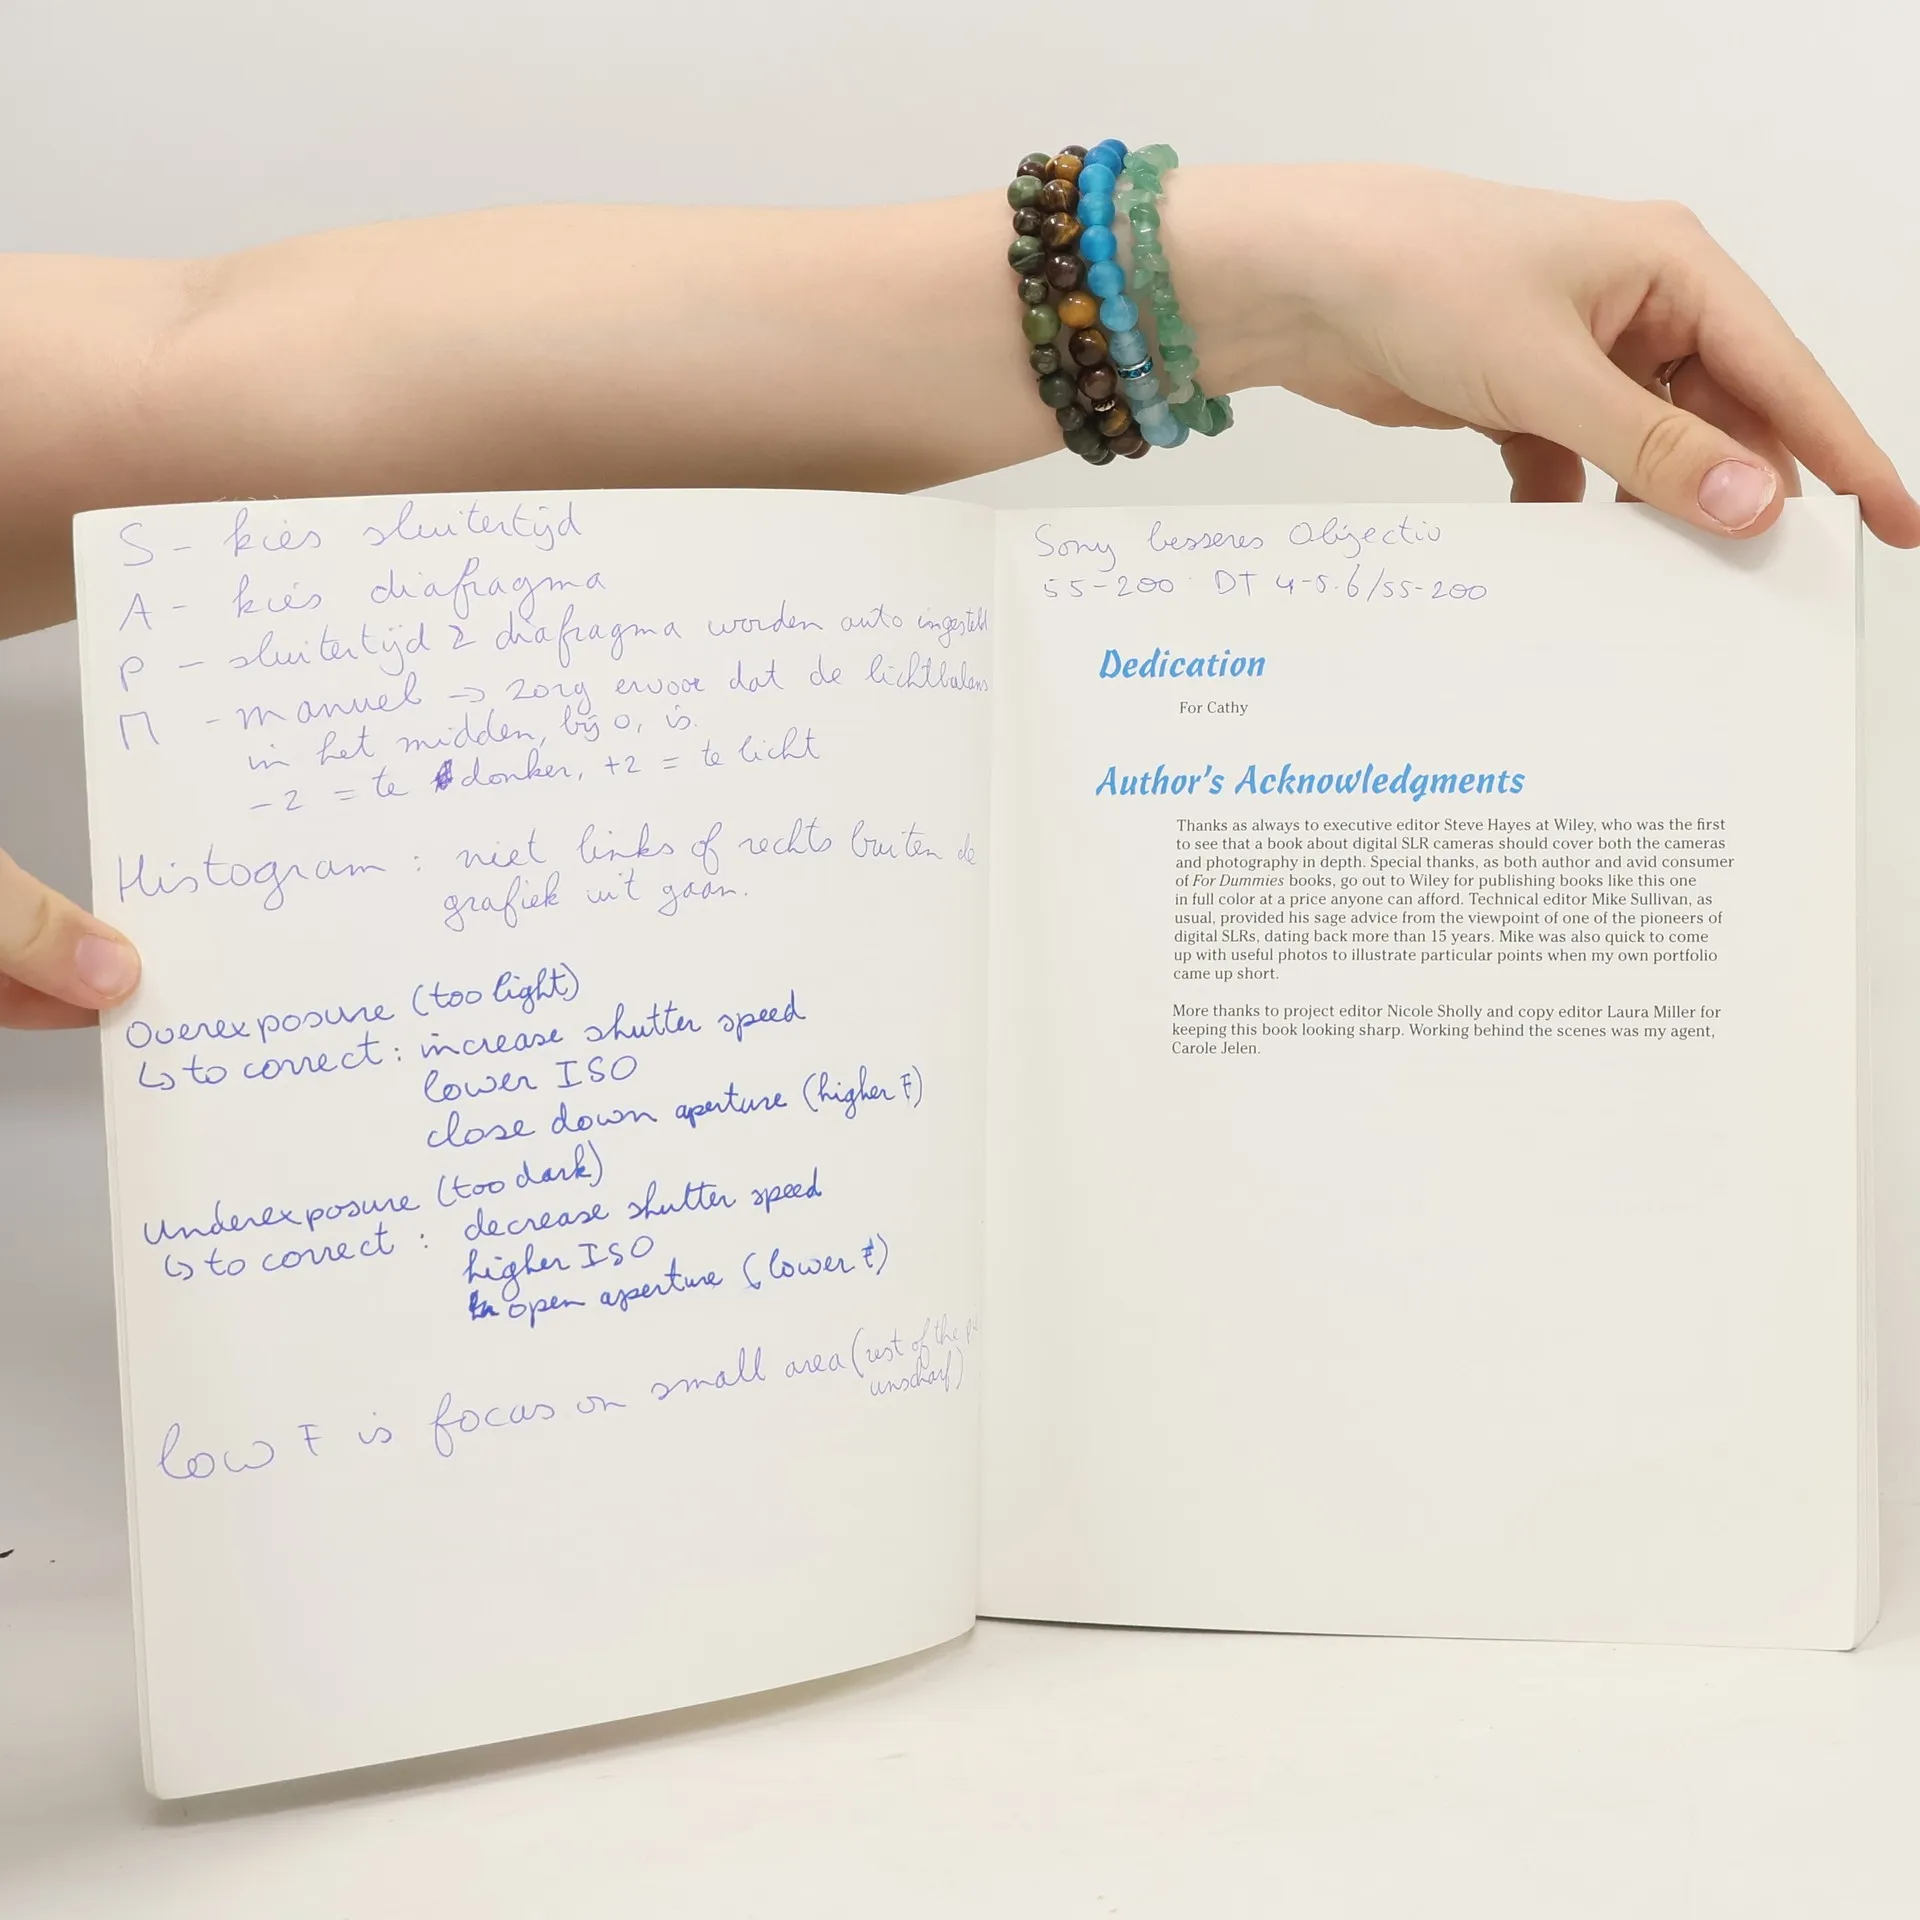 S - kies sluitertijd
A - kies diafragma
P - sluitertijd & diafragma worden auto ingesteld
M - manuel → zorg ervoor dat de lichtbalans
in het midden, bij 0, is.
-2 = te donker, +2 = te licht
Histogram : niet links of rechts buiten de
grafiek uit gaan.
Overexposure (too light)
↳ to correct : increase shutter speed
lower ISO
close down aperture (higher F)
Underexposure (too dark)
↳ to correct : decrease shutter speed
higher ISO
open aperture (lower F)
low F is focus on small area (rest of the
unscharf)
Sony besseres Objectiv
55-200 DT 4-5.6/55-200
Dedication
For Cathy
Author's Acknowledgments
Thanks as always to executive editor Steve Hayes at Wiley, who was the first
to see that a book about digital SLR cameras should cover both the cameras
and photography in depth. Special thanks, as both author and avid consumer
of For Dummies books, go out to Wiley for publishing books like this one
in full color at a price anyone can afford. Technical editor Mike Sullivan, as
usual, provided his sage advice from the viewpoint of one of the pioneers of
digital SLRs, dating back more than 15 years. Mike was also quick to come
up with useful photos to illustrate particular points when my own portfolio
came up short.
More thanks to project editor Nicole Sholly and copy editor Laura Miller for
keeping this book looking sharp. Working behind the scenes was my agent,
Carole Jelen.